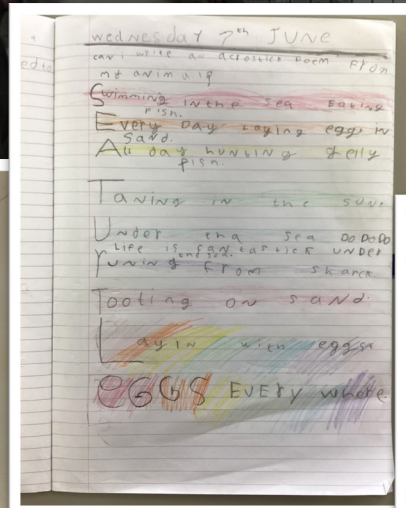 wednesday 7th JUNE
can i write an acrostick poem From
my animalp
Swimming In the sea Eating
Fish.
Every Day Laying eggs in
Sand.
All day hunting Jelly
Fish.
Taning in the sun.
Under tha sea DO DO DO
Life is fantastick UNDER
the sea.
runing From sharck
Tooting on sand.
Layin with eggs
eGGS EVEry where